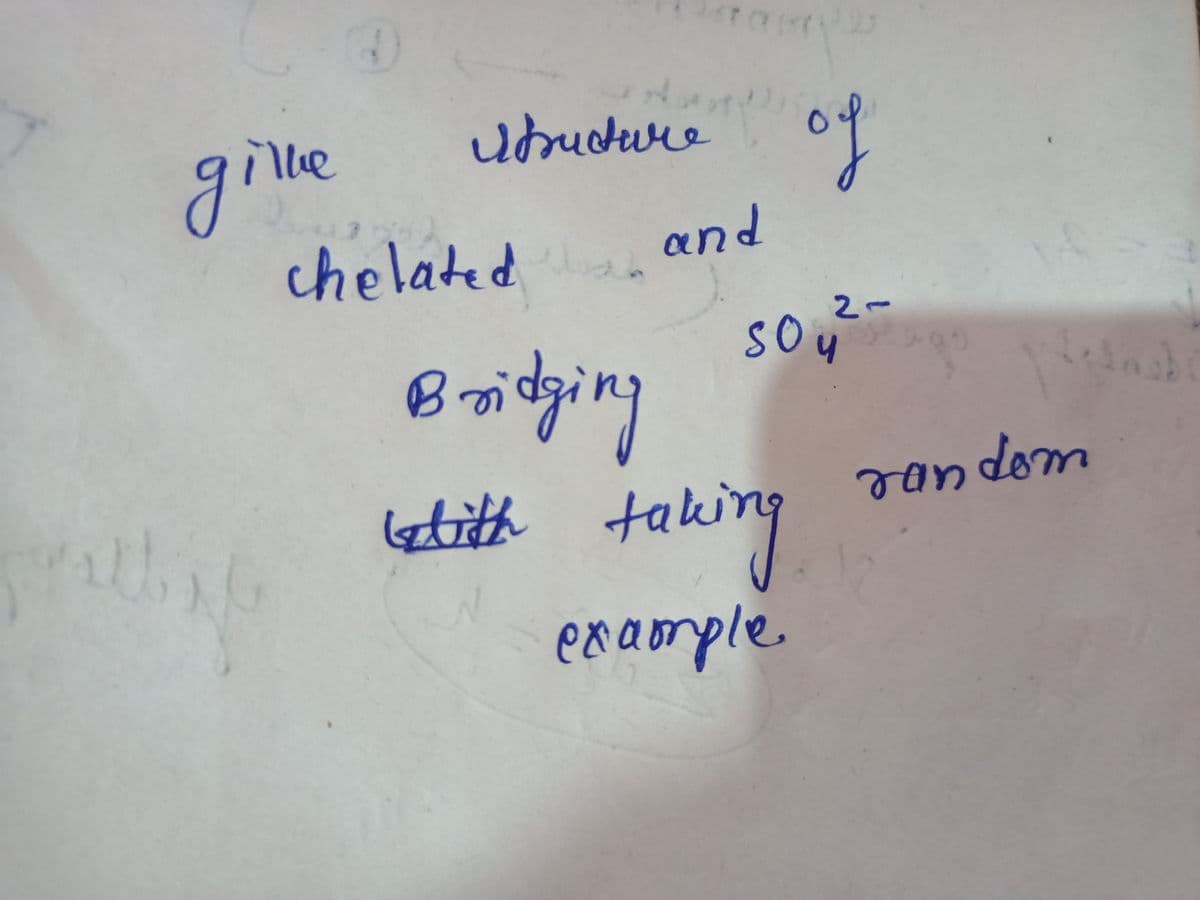 give structure of
chelated and
Bridging SO₄²⁻
taking random
example.